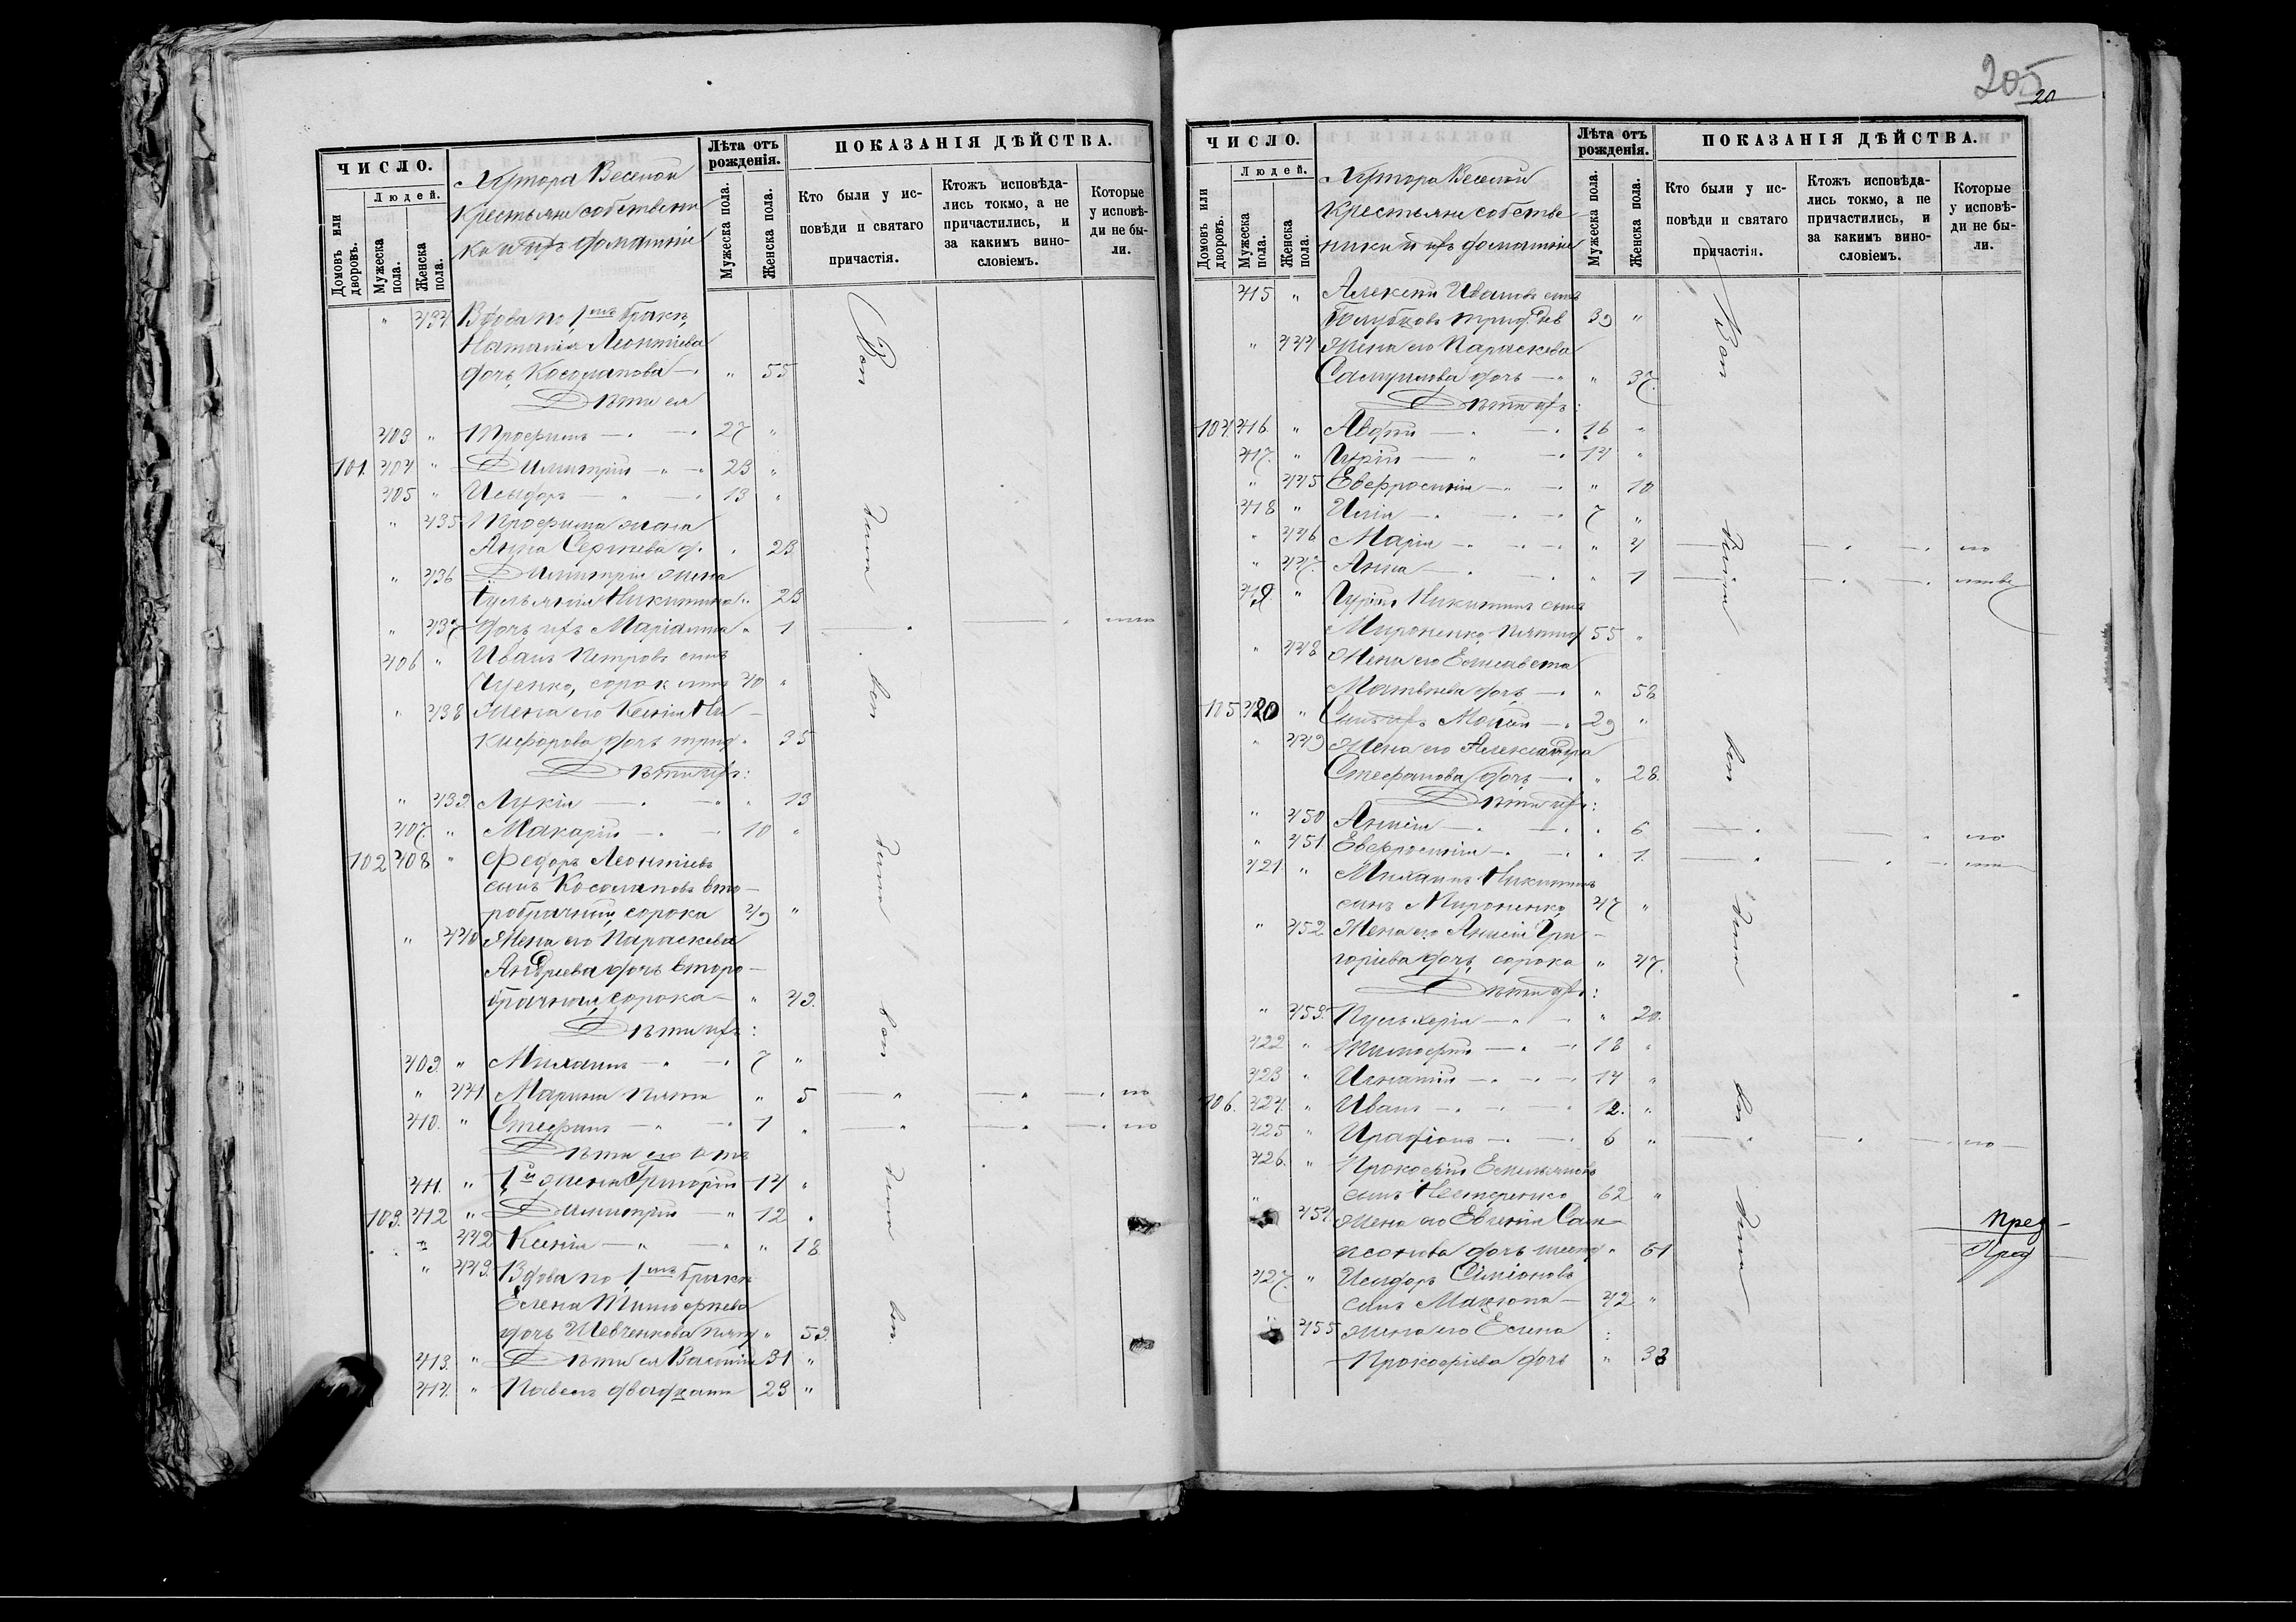 205
20
ЧИСЛО.
Людей.
Домовъ или дворовъ.
Мужеска пола.
Женска пола.
Хутора Веселой
Крестьяне собственни
ки и ихъ домашніе
Лѣта отъ рожденія.
Мужеска пола.
Женска пола.
ПОКАЗАНІЯ ДѢЙСТВА.
Кто были у ис-
повѣди и святаго
причастія.
Ктожъ исповѣда-
лись токмо, а не
причастились, и
за какимъ вино-
словіемъ.
Которые
у исповѣ-
ди не бы-
ли.
" 434 Вдова по 1мъ бракѣ
Наталія Леонтіева
дочь Косолапова " 55
Дѣти ея
403 " Трофимъ 27 "
101 404 " Димитрій 23 "
405 " Исидоръ 13 "
" 435 Трофима жена
Анна Сергіева д. " 23
" 436 Димитрія жена
Никитина " 23
" 437 дочь ихъ Маріанна " 1
406 " Иванъ Петровъ сынъ
сорок 40 "
" 438 Жена его Ксенія Ни-
кифорова дочь трид " 35
Дѣти ихъ:
" 439 Лукія " 13
407. " Макарій 10 "
102 408 " Федоръ Леонтіевъ
сынъ Косолаповъ вто-
робрачный сорока 49 "
" 440 Жена его Параскева
Андреева дочь второ-
брачная сорока " 43.
Дѣти ихъ:
409. " Михаилъ 7 "
" 441 Марина пята " 5
410. " Стефанъ 1 "
Дѣти его отъ
411. " 1й жены Григорій 14 "
103. 412 " Димитрій 12 "
" 442 Ксенія " 18
" 443. Вдова по 1мъ бракѣ
Елена Тимофеева
дочь Шевченкова пятд " 53.
413. " Дѣти ея 31 "
414. " Павелъ двадцати 23 "
ЧИСЛО.
Людей.
Домовъ или дворовъ.
Мужеска пола.
Женска пола.
Хутора Веселой
Крестьяне собстве
нники и ихъ домашніе
Лѣта отъ рожденія.
Мужеска пола.
Женска пола.
ПОКАЗАНІЯ ДѢЙСТВА.
Кто были у ис-
повѣди и святаго
причастія.
Ктожъ исповѣда-
лись токмо, а не
причастились, и
за какимъ вино-
словіемъ.
Которые
у исповѣ-
ди не бы-
ли.
415 " Алексѣй Ивановъ сынъ
Голубцовъ 39 "
" 444 Жена его Параскева
Самуилова дочь " 37.
Дѣти ихъ:
104. 416. " Авдій 16 "
417. " Гурій 14 "
" 445 Евфросинія " 10
418 " Илія 7 "
" 446. Марія " 4
" 447. Анна " 1
419. " Гурій Никитинъ сынъ
Мироненко пятид 55 "
" 448 Жена его Елисавета
Матвѣева дочь " 58
105 420 " Сынъ ихъ Моисей 29 "
" 449 Жена его Александра
Стефанова дочь " 28.
Дѣти ихъ:
" 450 Анисія " 6
" 451 Евфросинія " 1.
421 " Михаилъ Никитинъ
сынъ Мироненко 47 "
" 452 Жена его Анисія Гри-
горіева дочь сорока " 47.
Дѣти ихъ:
" 453. Пульхерія " 20.
422 " Тимофей 18 "
423 " Игнатій 14 "
106. 424. " Иванъ 12. "
425 " Иродіонъ 6 "
426. " Прокофій Емельяновъ
сынъ Нестеренко 62 "
" 454. Жена его Евгенія Сам-
псонова дочь шестд " 61
427. " Исидоръ Симіоновъ
сынъ 42 "
" 455 Жена его Елена
Прокофіева дочь " 33